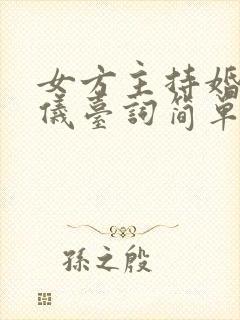 女方主持婚
儀臺詞简单
孫之殷